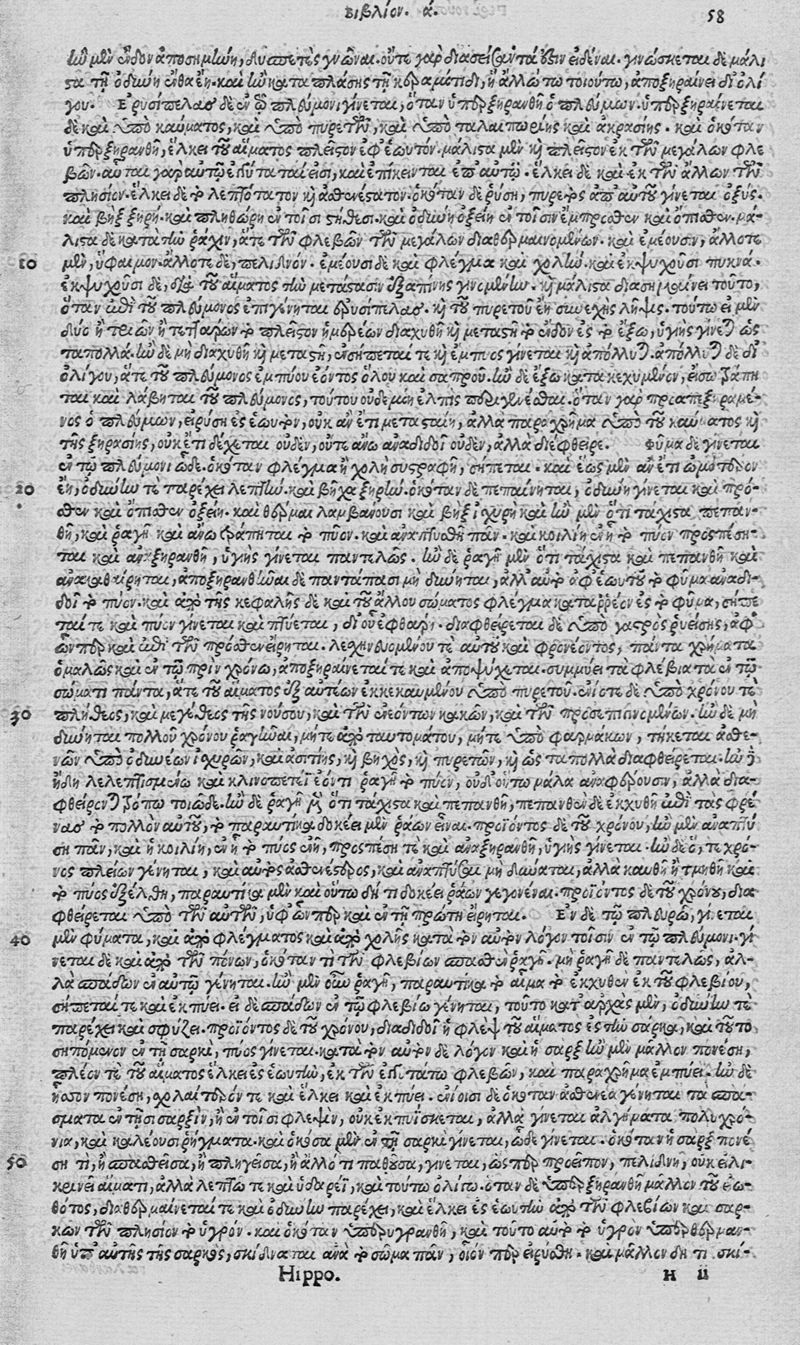 Βιβλίον. ά. 58
ἰὼ μὲν ἔνδον ἀποσημήνῃ, δυσπετὲς γνῶναι. οὔτε γὰρ διασείσαντα ἔστιν εἰδέναι. γινώσκεται δὲ μάλι
στα τῇ ὀδύνῃ ἔνθα ἔῃ. καὶ ἢν καταπλάσῃς τῇ κεραμίτιδι, ἢ ἄλλῳ τῳ τοιούτῳ, ἀποξηραίνει δι᾽ ὀλί
γου. Ἐρυσίπελας δὲ ἐν τῷ πλεύμονι γίνεται, ὅταν ὑπερξηρανθῇ ὁ πλεύμων. ὑπερξηραίνεται
δὲ καὶ ὑπὸ καύματος, καὶ ὑπὸ πυρετῶν, καὶ ὑπὸ ταλαιπωρίης καὶ ἀκρασίης. καὶ ὁκόταν
ὑπερξηρανθῇ, ἕλκει τοῦ αἵματος πλεῖστον ἐφ᾽ ἑωυτόν. μάλιστα μὲν καὶ πλεῖστον ἐκ τῶν μεγάλων φλε
βῶν. αὗται γὰρ αὐτῷ ἐγγύταταί εἰσι, καὶ ἐπίκεινται ἐπ᾽ αὐτῷ. ἕλκει δὲ καὶ ἐκ τῶν ἄλλων τῶν
πλησίον. ἕλκει δὲ τὸ λεπτότατον καὶ ἀσθενέστατον. ὁκόταν δὲ ρύσῃ, πυρετὸς ἀπ᾽ αὐτοῦ γίνεται ὀξύς.
καὶ βὴξ ξηρή. καὶ πληθώρη ἐν τοῖσι στήθεσι. καὶ ὀδύνη ὀξείη ἐν τοῖσιν ἔμπροσθεν καὶ ὄπισθεν. μά-
λιστα δὲ κατὰ τὴν ῥάχιν, ἅτε τῶν φλεβῶν τῶν μεγάλων διαθερμαινομένων. καὶ ἐμέουσιν, ἄλλοτε
10 μὲν, ὕφαιμον. ἄλλοτε δὲ, πελιδνόν. ἐμέουσι δὲ καὶ φλέγμα καὶ χολήν. καὶ ἐκψυχοῦσι πυκνά.
ἐκψυχοῦσι δὲ, διὰ τοῦ αἵματος τὴν μετάστασιν ἐξαπίνης γινομένην. καὶ μάλιστα διασημαίνει τοῦτο,
ὅταν ἐπὶ τοῦ πλεύμονος ἐπιγένηται ἐρυσίπελας. καὶ τοῦ πυρετοῦ ἔῃ συνεχὴς λῆψις. τούτῳ εἰ μὲν
δύο ἢ τριῶν ἢ τεσσάρων τὸ πλεῖστον ἡμερέων διαχυθῇ καὶ μεταστῇ τὸ ἔνδον ἐς τὸ ἔξω, ὑγιὴς γίνεται ὡς
ταπολλά. ἢν δὲ μὴ διαχυθῇ καὶ μεταστῇ, ἐνσήπεταί τε καὶ ἔμπυος γίνεται καὶ ἀπόλλυται. ἀπόλλυται δὲ δι᾽
ὀλίγου, ἅτε τοῦ πλεύμονος ἐμπύου ἐόντος ὅλου καὶ σαπροῦ. ἢν δὲ ἔξω κατακεχυμένον, εἴσω τράπη
ται καὶ λάβηται τοῦ πλεύμονος, τούτου οὐδεμίη ἐλπὶς περιγενέσθαι. ὅταν γὰρ προαπεξηραμέ-
νος ὁ πλεύμων, εἰρύσῃ ἐς ἑωυτὸν, οὐκ ἂν ἔτι μετασταίη, ἀλλὰ παραχρῆμα ὑπὸ τοῦ καύματος καὶ
τῆς ξηρασίης, οὐκ ἔτι δέχεται οὐδὲν, οὔτε ἄνω ἀναδιδοῖ οὐδὲν, ἀλλὰ διέφθειρε. Φῦμα δὲ γίνεται
ἐν τῷ πλεύμονι ὧδε. ὁκόταν φλέγμα ἢ χολὴ συστραφῇ, σήπεται. καὶ ἕως μὲν ἂν ἔτι ὠμότερον
20 ἔῃ, ὀδύνην τε παρέχει λεπτὴν καὶ βῆχα ξηρήν. ὁκόταν δὲ πεπαίνηται, ὀδύνη γίνεται καὶ πρό-
σθεν καὶ ὄπισθεν ὀξείη. καὶ θέρμαι λαμβάνουσι καὶ βὴξ ἰσχυρὴ καὶ ἢν μὲν ὅτι τάχιστα πεπαν-
θῇ, καὶ ῥαγῇ καὶ ἄνω τράπηται τὸ πῦον. καὶ ἀναπτυσθῇ πᾶν. καὶ κοιλίη ἐν ᾗ τὸ πῦον προσπέσῃ-
ται καὶ ἀναξηρανθῇ, ὑγιὴς γίνεται παντελῶς. ἢν δὲ ῥαγῇ μὲν ὅτι τάχιστα καὶ πεπανθῇ καὶ
ἀνακαθαίρηται, ἀποξηρανθῆναι δὲ παντάπασι μὴ δύνηται, ἀλλ᾽ αὐτὸ ἀφ᾽ ἑωυτοῦ τὸ φῦμα ἀναδι-
δοῖ τὸ πῦον. καὶ ἀπὸ τῆς κεφαλῆς δὲ καὶ τοῦ ἄλλου σώματος φλέγμα καταρρέον ἐς τὸ φῦμα, σήπε
ταί τε καὶ πῦον γίνεται καὶ πτύεται, διουεφθάρη. διαφθείρεται δὲ ὑπὸ γαστρὸς ῥυείσης, ἀφ᾽
ὧν περ καὶ ἐπὶ τῶν πρόσθεν εἴρηται. λεσχηνευομένου τε αὐτοῦ καὶ φρονέοντος, πάντα χρήματα
ὁμαλῶς καὶ ἐν τῷ πρὶν χρόνῳ, ἀποξηραίνεταί τε καὶ ἀποψύχεται. συμμύει τὰ φλέβια τὰ ἐν τῷ
σώματι πάντα, ἅτε τοῦ αἵματος ἐξ αὐτέων ἐκκεκαυμένου ὑπὸ πυρετοῦ. ἐνίοτε δὲ ὑπὸ χρόνου τε
30 πλήθεος, καὶ μεγέθεος τῆς νούσου, καὶ τῶν ἐνεόντων κακῶν, καὶ τῶν προσεπιγινομένων. ἢν δὲ μὴ
δύνηται πολλοῦ χρόνου ῥαγῆναι, μήτε ἀπὸ ταυτομάτου, μήτε ὑπὸ φαρμάκων, τήκεται ἀσθε-
νῶν ὑπὸ ὀδυνέων ἰσχυρῶν, καὶ ἀσιτίης, καὶ βηχὸς, καὶ πυρετῶν, καὶ ὡς ταπολλὰ διαφθείρεται. ἢν δὲ
ἤδη λελεπτυσμένῳ καὶ κλινοπετεῖ ἐόντι ῥαγῇ τὸ πῦον, οὐδ᾽ οὕτω μάλα ἀναφέρουσιν, ἀλλὰ δια-
φθείρονται τρόπῳ τοιῷδε. ἢν δὲ ῥαγῇ μὲν ὅτι τάχιστα καὶ πεπανθῇ, πεπανθὲν δὲ ἐκχυθῇ ἐπὶ τὰς φρέ
νας τὸ πολλὸν αὐτοῦ, τὸ παραυτίκα δοκέει μὲν ῥάων εἶναι. προϊόντος δὲ τοῦ χρόνου, ἢν μὲν ἀναπτύ
σῃ πᾶν, καὶ ἡ κοιλίη, ἐν ᾗ τὸ πύος ἔνι, προσπέσῃ τε καὶ ἀναξηρανθῇ, ὑγιὴς γίνεται. ἢν δὲ ὅ, τε χρό-
νος πλείων γένηται, καὶ αὐτὸς ἀσθενέστερος, καὶ ἀναπτύσαι μὴ δύναται, ἀλλὰ καυθῇ ἢ τμηθῇ καὶ
τὸ πύος ἐξέλθῃ, παραυτίκα μὲν καὶ οὕτω δή τι δοκέει ῥάων γεγονέναι. προϊόντος δὲ τοῦ χρόνου, δια
φθείρεται ὑπὸ τῶν αὐτῶν, ὑφ᾽ ὧν περ καὶ ἐν τῇ πρώτῃ εἴρηται. Ἐν δὲ τῷ πλευρῷ, γίνεται
40 μὲν φύματα, καὶ ἀπὸ φλέγματος καὶ ἀπὸ χολῆς κατὰ τὸν αὐτὸν λόγον τοῖσιν ἐν τῷ πλεύμονι. γί
νεται δὲ καὶ ἀπὸ τῶν πόνων, ὁκόταν τι τῶν φλεβίων σπασθὲν ῥαγῇ. μὴ ῥαγῇ δὲ παντελῶς, ἀλ-
λὰ σπαδὼν ἐν αὐτῷ γένηται. ἢν μὲν οὖν ῥαγῇ, παραυτίκα τὸ αἷμα τὸ ἐκχυθὲν ἐκ τοῦ φλεβίου,
σήπεταί τε καὶ ἐκπύει. εἰ δὲ σπαδὼν ἐν τῷ φλεβίῳ γένηται, τοῦτο κατ᾽ ἀρχὰς μὲν, ὀδύνην τε
παρέχει καὶ σφύζει. προϊόντος δὲ τοῦ χρόνου, διαδιδοῖ ἡ φλὲψ τοῦ αἵματος ἐς τὴν σάρκα, καὶ τοῦτο
σηπόμενον ἐν τῇ σαρκὶ, πύος γίνεται. κατὰ τὸν αὐτὸν δὲ λόγον καὶ ἡ σὰρξ ἢν μὲν μᾶλλον πονέσῃ,
πλέον τε τοῦ αἵματος ἕλκει ἐς ἑωυτὴν, ἐκ τῶν ἐγγυτάτω φλεβῶν, καὶ παραχρῆμα ἐμπύει. ἢν δὲ
ἧσσον πονέσῃ, σχολαίτερόν τε καὶ ἕλκει καὶ ἐκπύει. ἐνίοισι δὲ ὁκόταν ἀσθενέα γένηται τὰ σπά-
σματα ἐν τῇσι σαρξὶν, ἢ ἐν τοῖσι φλεψὶν, οὐκ ἐκπυΐσκεται, ἀλλὰ γίνεται ἀλγήματα πολυχρό-
νια, καὶ καλέουσι ῥήγματα. καὶ ὁκόσα μὲν ἐν τῇ σαρκὶ γίνεται, ὧδε γίνεται. ὁκόταν ἡ σὰρξ πονέ
50 σῃ τι, ἢ σπασθεῖσα, ἢ πληγεῖσα, ἢ ἄλλό τι παθοῦσα, γίνεται, ὥς περ προεῖπον, πελιδνὴ, οὐκ εἰλι-
κρινέϊ αἵματι, ἀλλὰ λεπτῷ τε καὶ ὑδαρέϊ, καὶ τούτῳ ὀλίγῳ. ὅταν δὲ ὑπερξηρανθῇ μᾶλλον τοῦ ἐω-
θότος, διαθερμαίνεταί τε καὶ ὀδύνην παρέχει, καὶ ἕλκει ἐς ἑωυτὴν ἀπὸ τῶν φλεβίων καὶ σαρ-
κῶν τῶν πλησίον τὸ ὑγρόν. καὶ ὁκόταν ὑπερυγρανθῇ, καὶ τοῦτο αὐτὸ τὸ ὑγρὸν ὑπερθερμαν-
θῇ ὑπ᾽ αὐτῆς τῆς σαρκὸς, σκίδναται ἀνὰ τὸ σῶμα πᾶν, οἷόν περ εἰρύσθη. καὶ μᾶλλον δή τι σκί-
Hippo. H ii